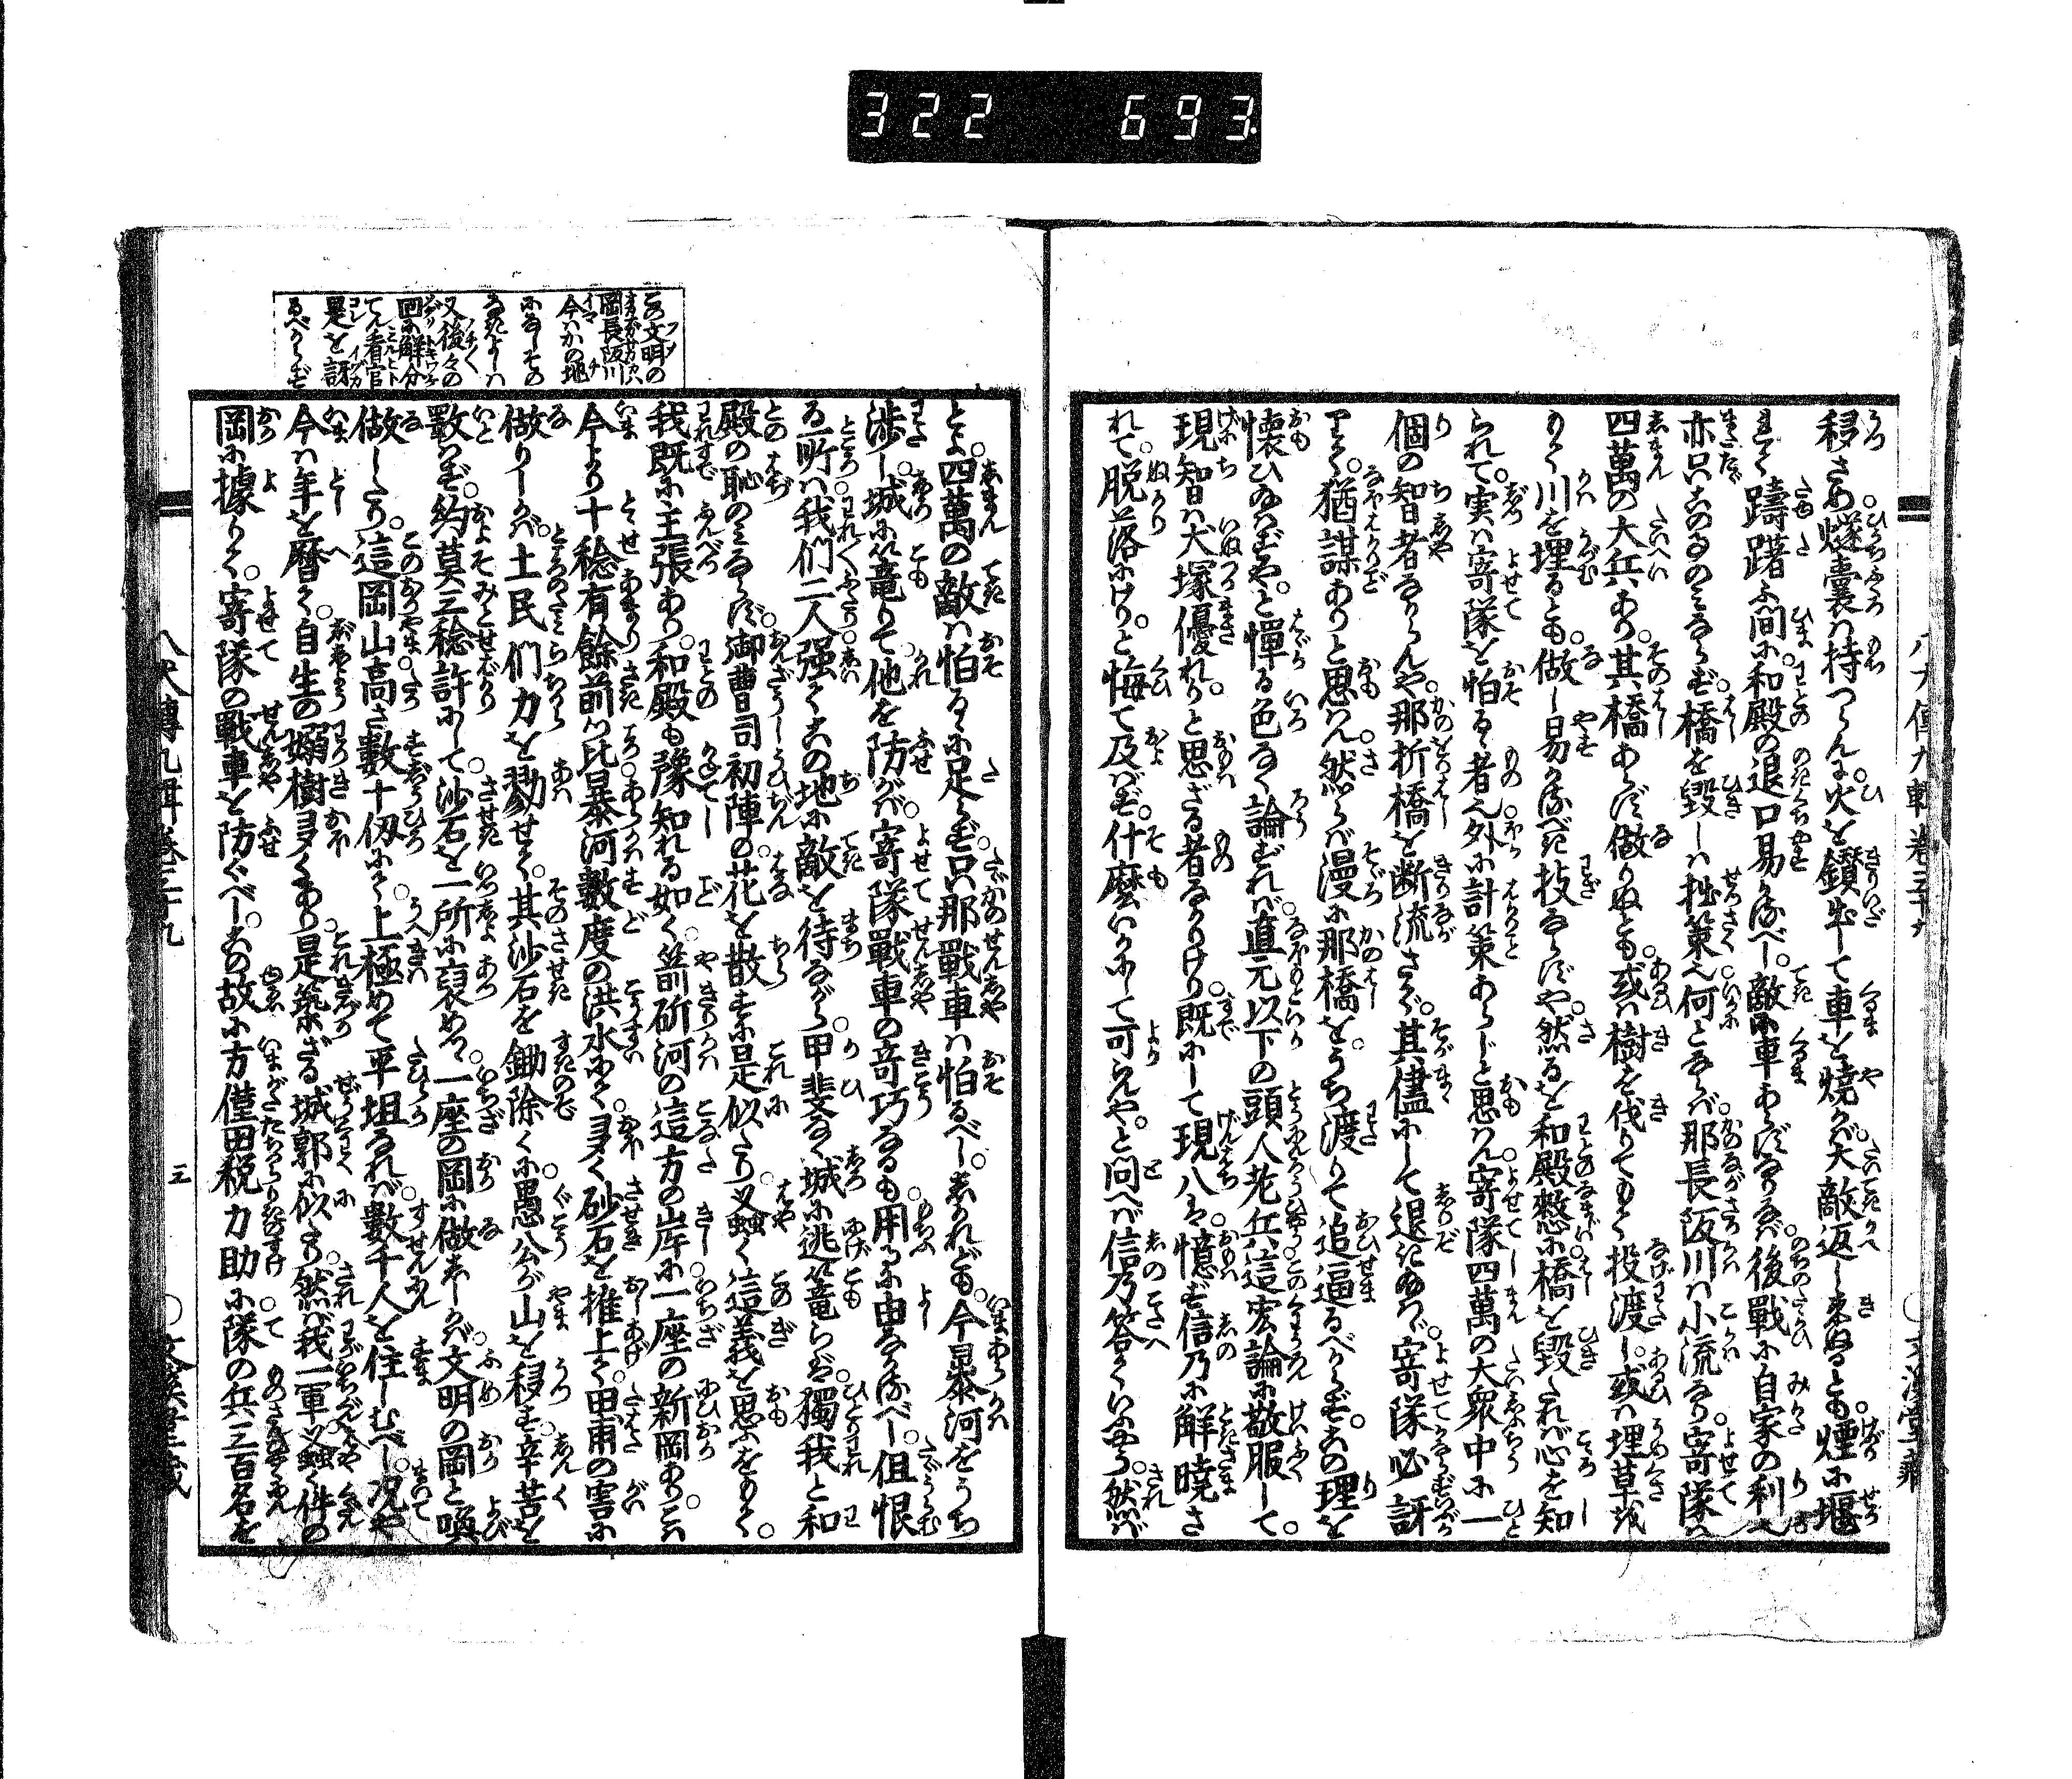 322 693
八犬傳九輯卷三十九
○文溪堂藏
移さめ。燧囊は持つらんに。火を鑽出して車を燒かば。大敵返し來ぬるとも。煙に堰
れて躊躇ふ間に。和殿の退口易かるべし。敵に車あらずなりなば。後戰に自家の利
亦只このことのみならず。橋を毀しは拙策也。何とならば。那長阪川は小流なり。寄隊は
四萬の大兵あり。其橋あらずなりぬとも。或は樹を伐りてもて投渡し。或は埋草
もて川を埋るとも。做し易かるべき技ならずや。然るを和殿憖に橋を毀たれば。心を知
られて。実は寄隊を怕るゝ者。外に計策あらじと思はん。寄隊四萬の大衆中に。一
個の智者なからんや。那折橋を断流さで。其儘にして退き給はゞ。寄隊必訝
りて。猶謀ありと思はん。然らば漫に那橋を。うち渡りて追逼るべからず。この理を
懐ひ給はずや。と憚る色なく論ずれば。直元以下の頭人老兵。這宏論に敬服して。
現智は犬塚優れり。と思ざる者なかりけり。既にして現八は。憶ず信乃に解曉さ
れて。脱落にけり。と悔て及ばず。什麼いかにして可らんや。と問へば信乃答ていふやう。然ば
とよ。四萬の敵は怕るゝに足らず。只那戰車は怕るべし。しかれども。今暴河をうち
渉し。城に篭りて他を防がば。寄隊戰車の奇巧なるも。用るに由なかるべし。但恨
る所は。我們二人。強てこの地に敵を待ながら。甲斐なく城に逃篭らば。獨我と和
殿の恥のみならず。御曹司初陣の花を散すに是似たり。蚤く這義を思ふをもて。
我既に主張あり。和殿も豫知れる如く。箭斫河の這方の岸に。一座の新岡あり。こは
今より十稔有餘前の比。暴河數度の洪水にて。多く砂石を推上て。田圃の害に
做りしかば。土民們力を勠せて。其沙石を鋤除くに。愚公が山を移す辛苦を
數はず。約莫三稔許にして。沙石を一所に裒めて。一座の岡に做ししかば。文明の岡と喚
做したり。這岡山高さ數十仭にて。上極めて平坦なれば。數千人を住しむべし。况や
今は年を曆て。自生の矮樹多くあり。是築ざる城郭に似たり。然ば我一軍。蚤く件の
岡に據りて。寄隊の戰車を防ぐべし。この故に方僅田税力助に。隊の兵三百名を
この文明の
岡長阪川
今はかの地
になしその
よしは
又後々の
回に解分
てん看官
是を訝
るべからず
八犬傳九輯卷三十九
三
○文溪堂藏